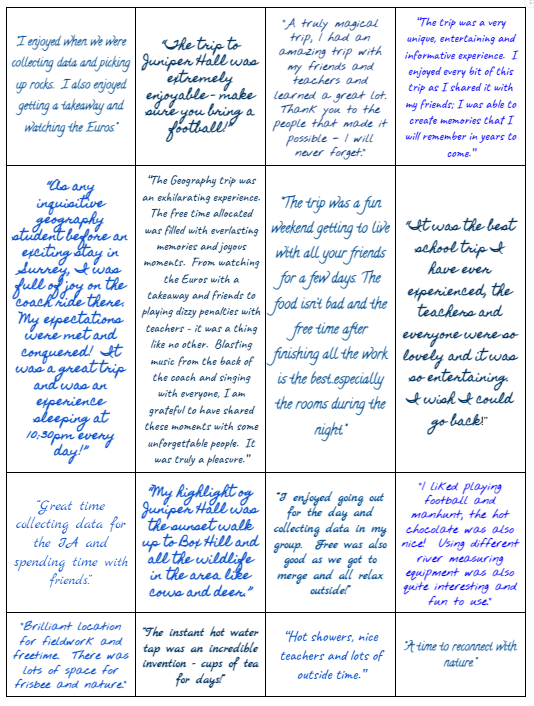 "I enjoyed when we were
collecting data and picking
up rocks. I also enjoyed
getting a takeaway and
watching the Euros."
"The trip to
Juniper Hall was
extremely
enjoyable - make
sure you bring a
football!"
"A truly magical
trip, I had an
amazing trip with
my friends and
teachers and
learned a great lot.
Thank you to the
people that made it
possible - I will
never forget."
"The trip was a very
unique, entertaining and
informative experience. I
enjoyed every bit of this
trip as I shared it with
my friends; I was able to
create memories that I
will remember in years to
come."
"As any
inquisitive
geography
student before an
exciting stay in
Surrey, I was
full of joy on the
coach ride there.
My expectations
were met and
conquered! It
was a great trip
and was an
experience
sleeping at
10:30pm every
day!"
"The Geography trip was
an exhilarating experience.
The free time allocated
was filled with everlasting
memories and joyous
moments. From watching
the Euros with a
takeaway and friends to
playing dizzy penalties with
teachers - it was a thing
like no other. Blasting
music from the back of
the coach and singing
with everyone, I am
grateful to have shared
these moments with some
unforgettable people. It
was truly a pleasure."
"The trip was a fun
weekend getting to live
with all your friends
for a few days. The
food isn't bad and the
free time after
finishing all the work
is the best.especially
the rooms during the
night."
"It was the best
school trip I
have ever
experienced, the
teachers and
everyone were so
lovely and it was
so entertaining.
I wish I could
go back!"
"Great time
collecting data for
the IA and
spending time with
friends."
"My highlight og
Juniper Hall was
the sunset walk
up to Box Hill and
all the wildlife
in the area like
cows and deer."
"I enjoyed going out
for the day and
collecting data in my
group. Free was also
good as we got to
merge and all relax
outside!"
"I liked playing
football and
manhunt, the hot
chocolate was also
nice! Using different
river measuring
equipment was also
quite interesting and
fun to use."
"Brilliant location
for fieldwork and
freetime. There was
lots of space for
frisbee and nature."
"The instant hot water
tap was an incredible
invention - cups of tea
for days!"
"Hot showers, nice
teachers and lots of
outside time."
"A time to reconnect with
nature."